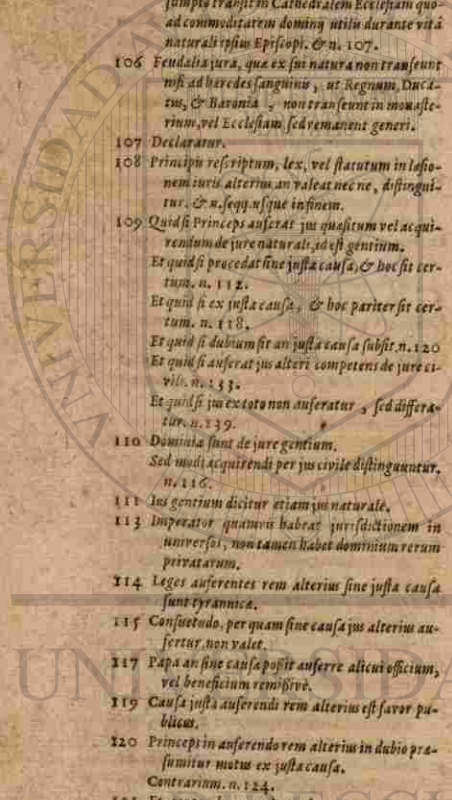 sumpto transit in Cathedralem Ecclesiam quo-
ad commoditatem dominij utilis durante vitâ
naturali ipsius Episcopi. & n. 107.
106 Feudalia jura, quæ ex sui natura non transeunt
nisi ad hæredes sanguinis, ut Regnum, Duca-
tus, & Baronia, non transeunt in monaste-
rium, vel Ecclesiam sed remanent generi.
107 Declaratur.
108 Principis rescriptum, lex, vel statutum in læsio-
nem iuris alterius an valeat nec ne, distingui-
tur. & n. seqq. usque in finem.
109 Quid si Princeps auferat jus quæsitum vel acqui-
rendum de jure naturali, id est gentium.
Et quid si procedat sine justa causa, & hoc sit cer-
tum. n. 112.
Et quid si ex justa causa, & hoc pariter sit cer-
tum. n. 118.
Et quid si dubium sit an justa causa subsit. n. 120
Et quid si auferat jus alteri competens de jure ci-
vili. n. 133.
Et quid si jus ex toto non auferatur, sed differa-
tur. n. 139.
110 Dominia sunt de jure gentium.
Sed modi acquirendi per jus civile distinguuntur.
n. 116.
111 Ius gentium dicitur etiam jus naturale.
113 Imperator quamvis habeat jurisdictionem in
universos, non tamen habet dominium rerum
privatarum.
114 Leges auferentes rem alterius sine justa causa
sunt tyrannicæ.
115 Consuetudo, per quam sine causa jus alterius au-
fertur, non valet.
117 Papa an sine causa possit auferre alicui officium,
vel beneficium remissivè.
119 Causa justa auferendi rem alterius est favor pu-
blicus.
120 Princeps in auferendo rem alterius in dubio præ-
sumitur motus ex justa causa.
Contrarium. n. 124.
UNIVERSIDAD